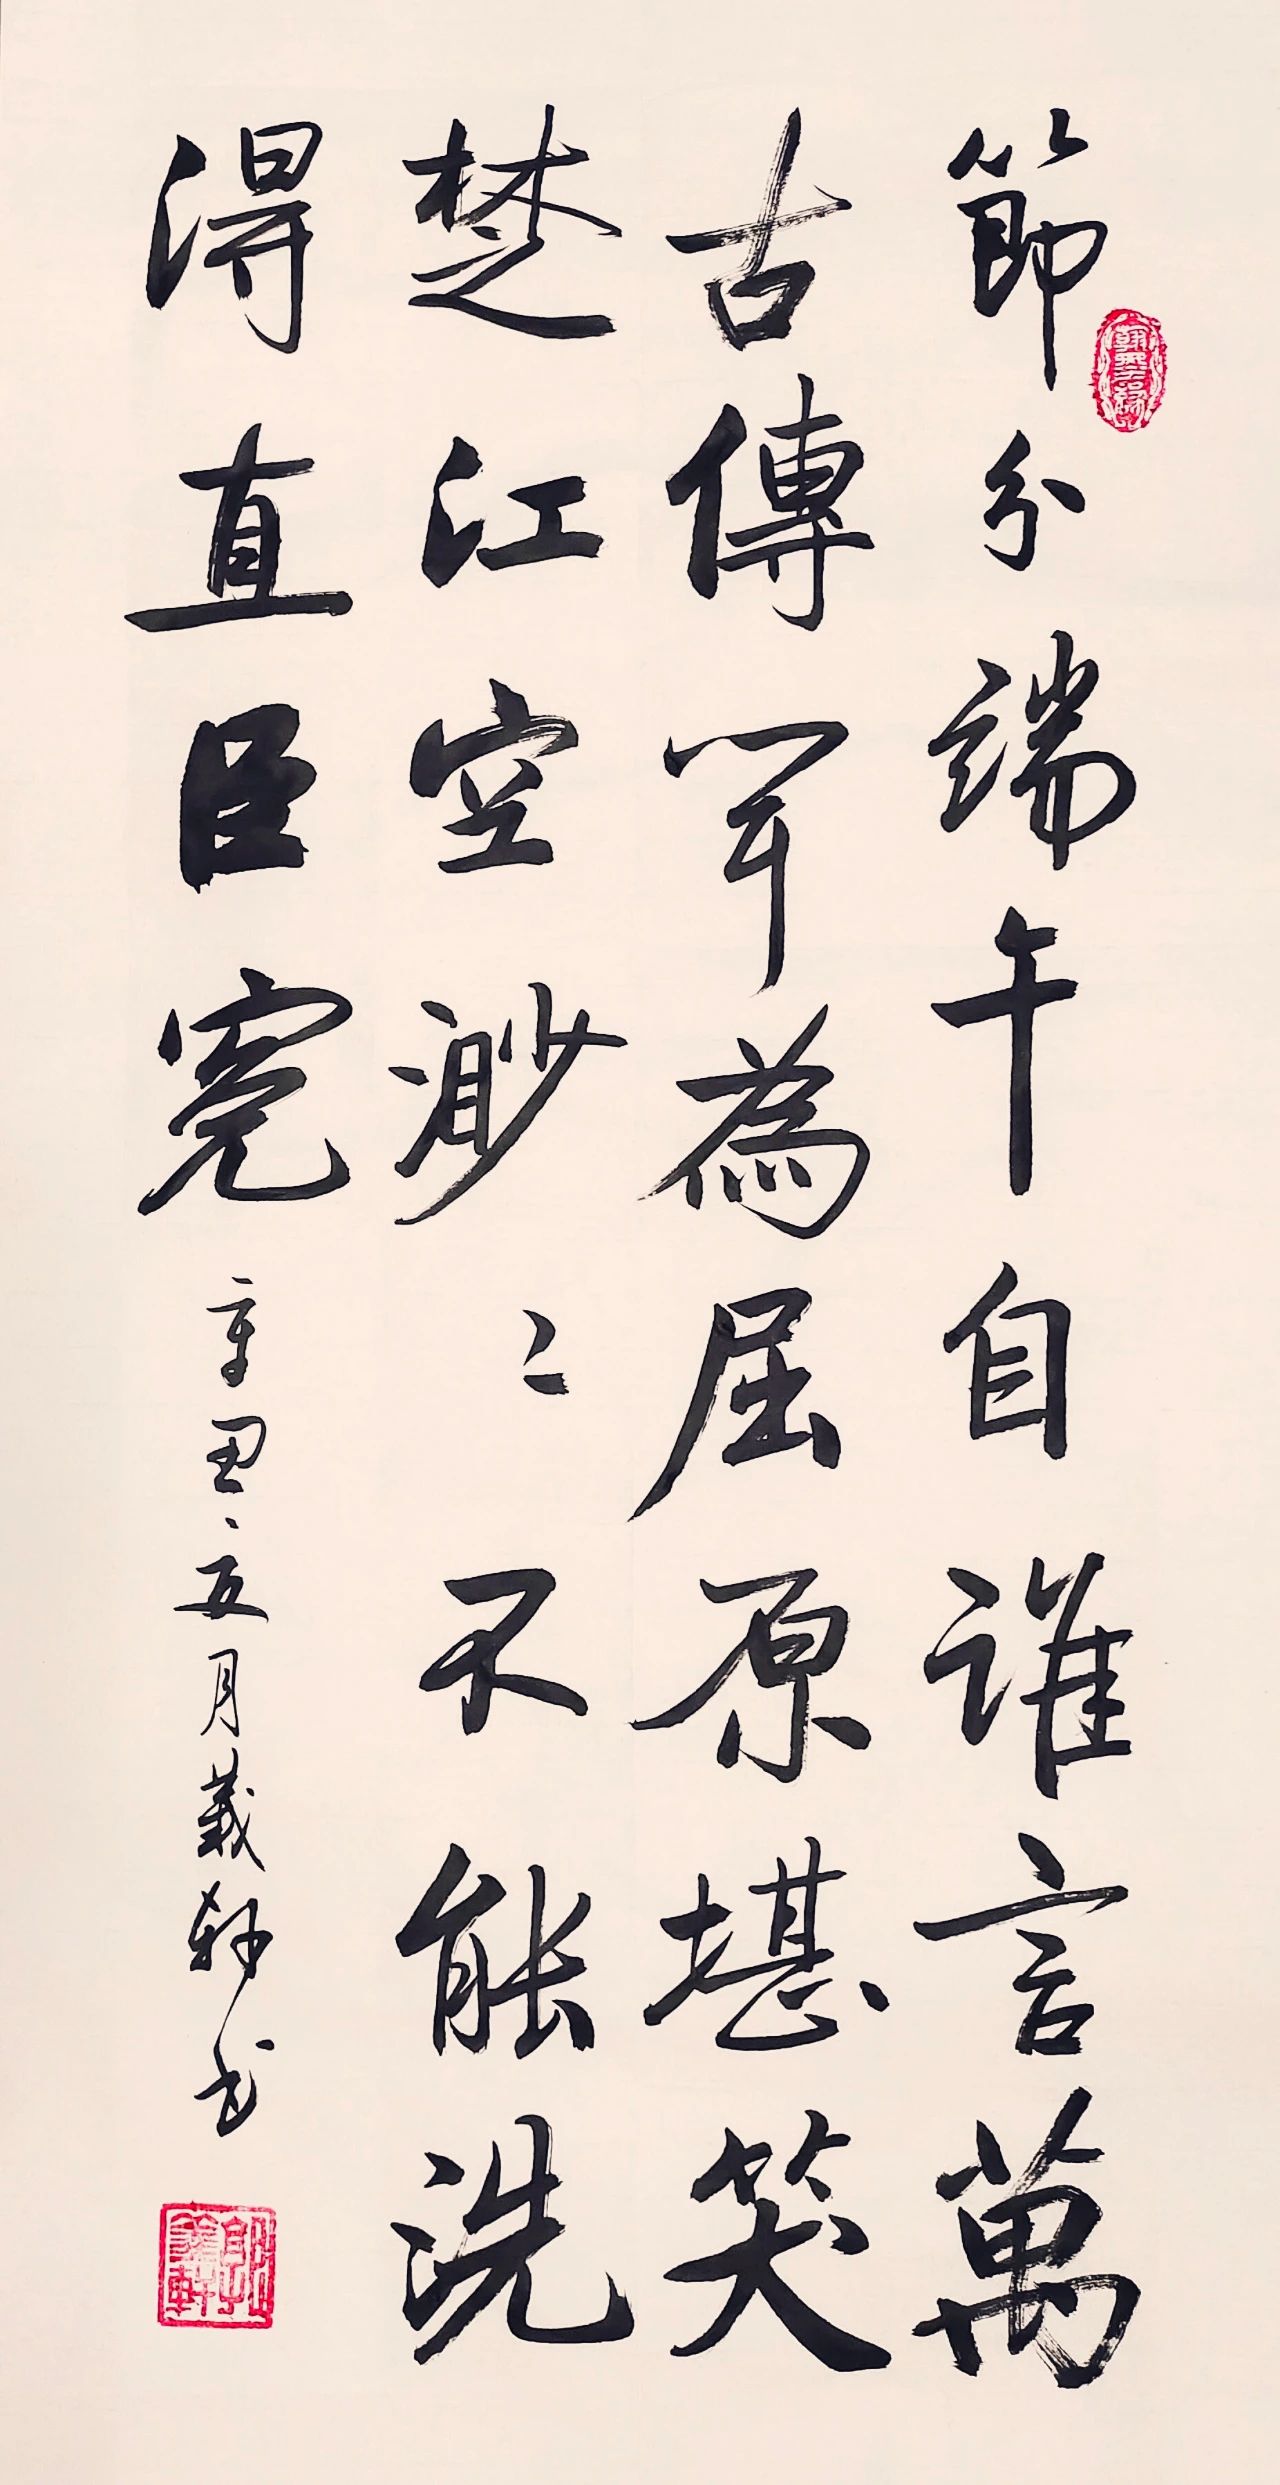 節分端午自誰言萬
古傳聞為屈原堪笑
楚江空渺〻不能洗
得直臣冤
辛丑五月義軒书